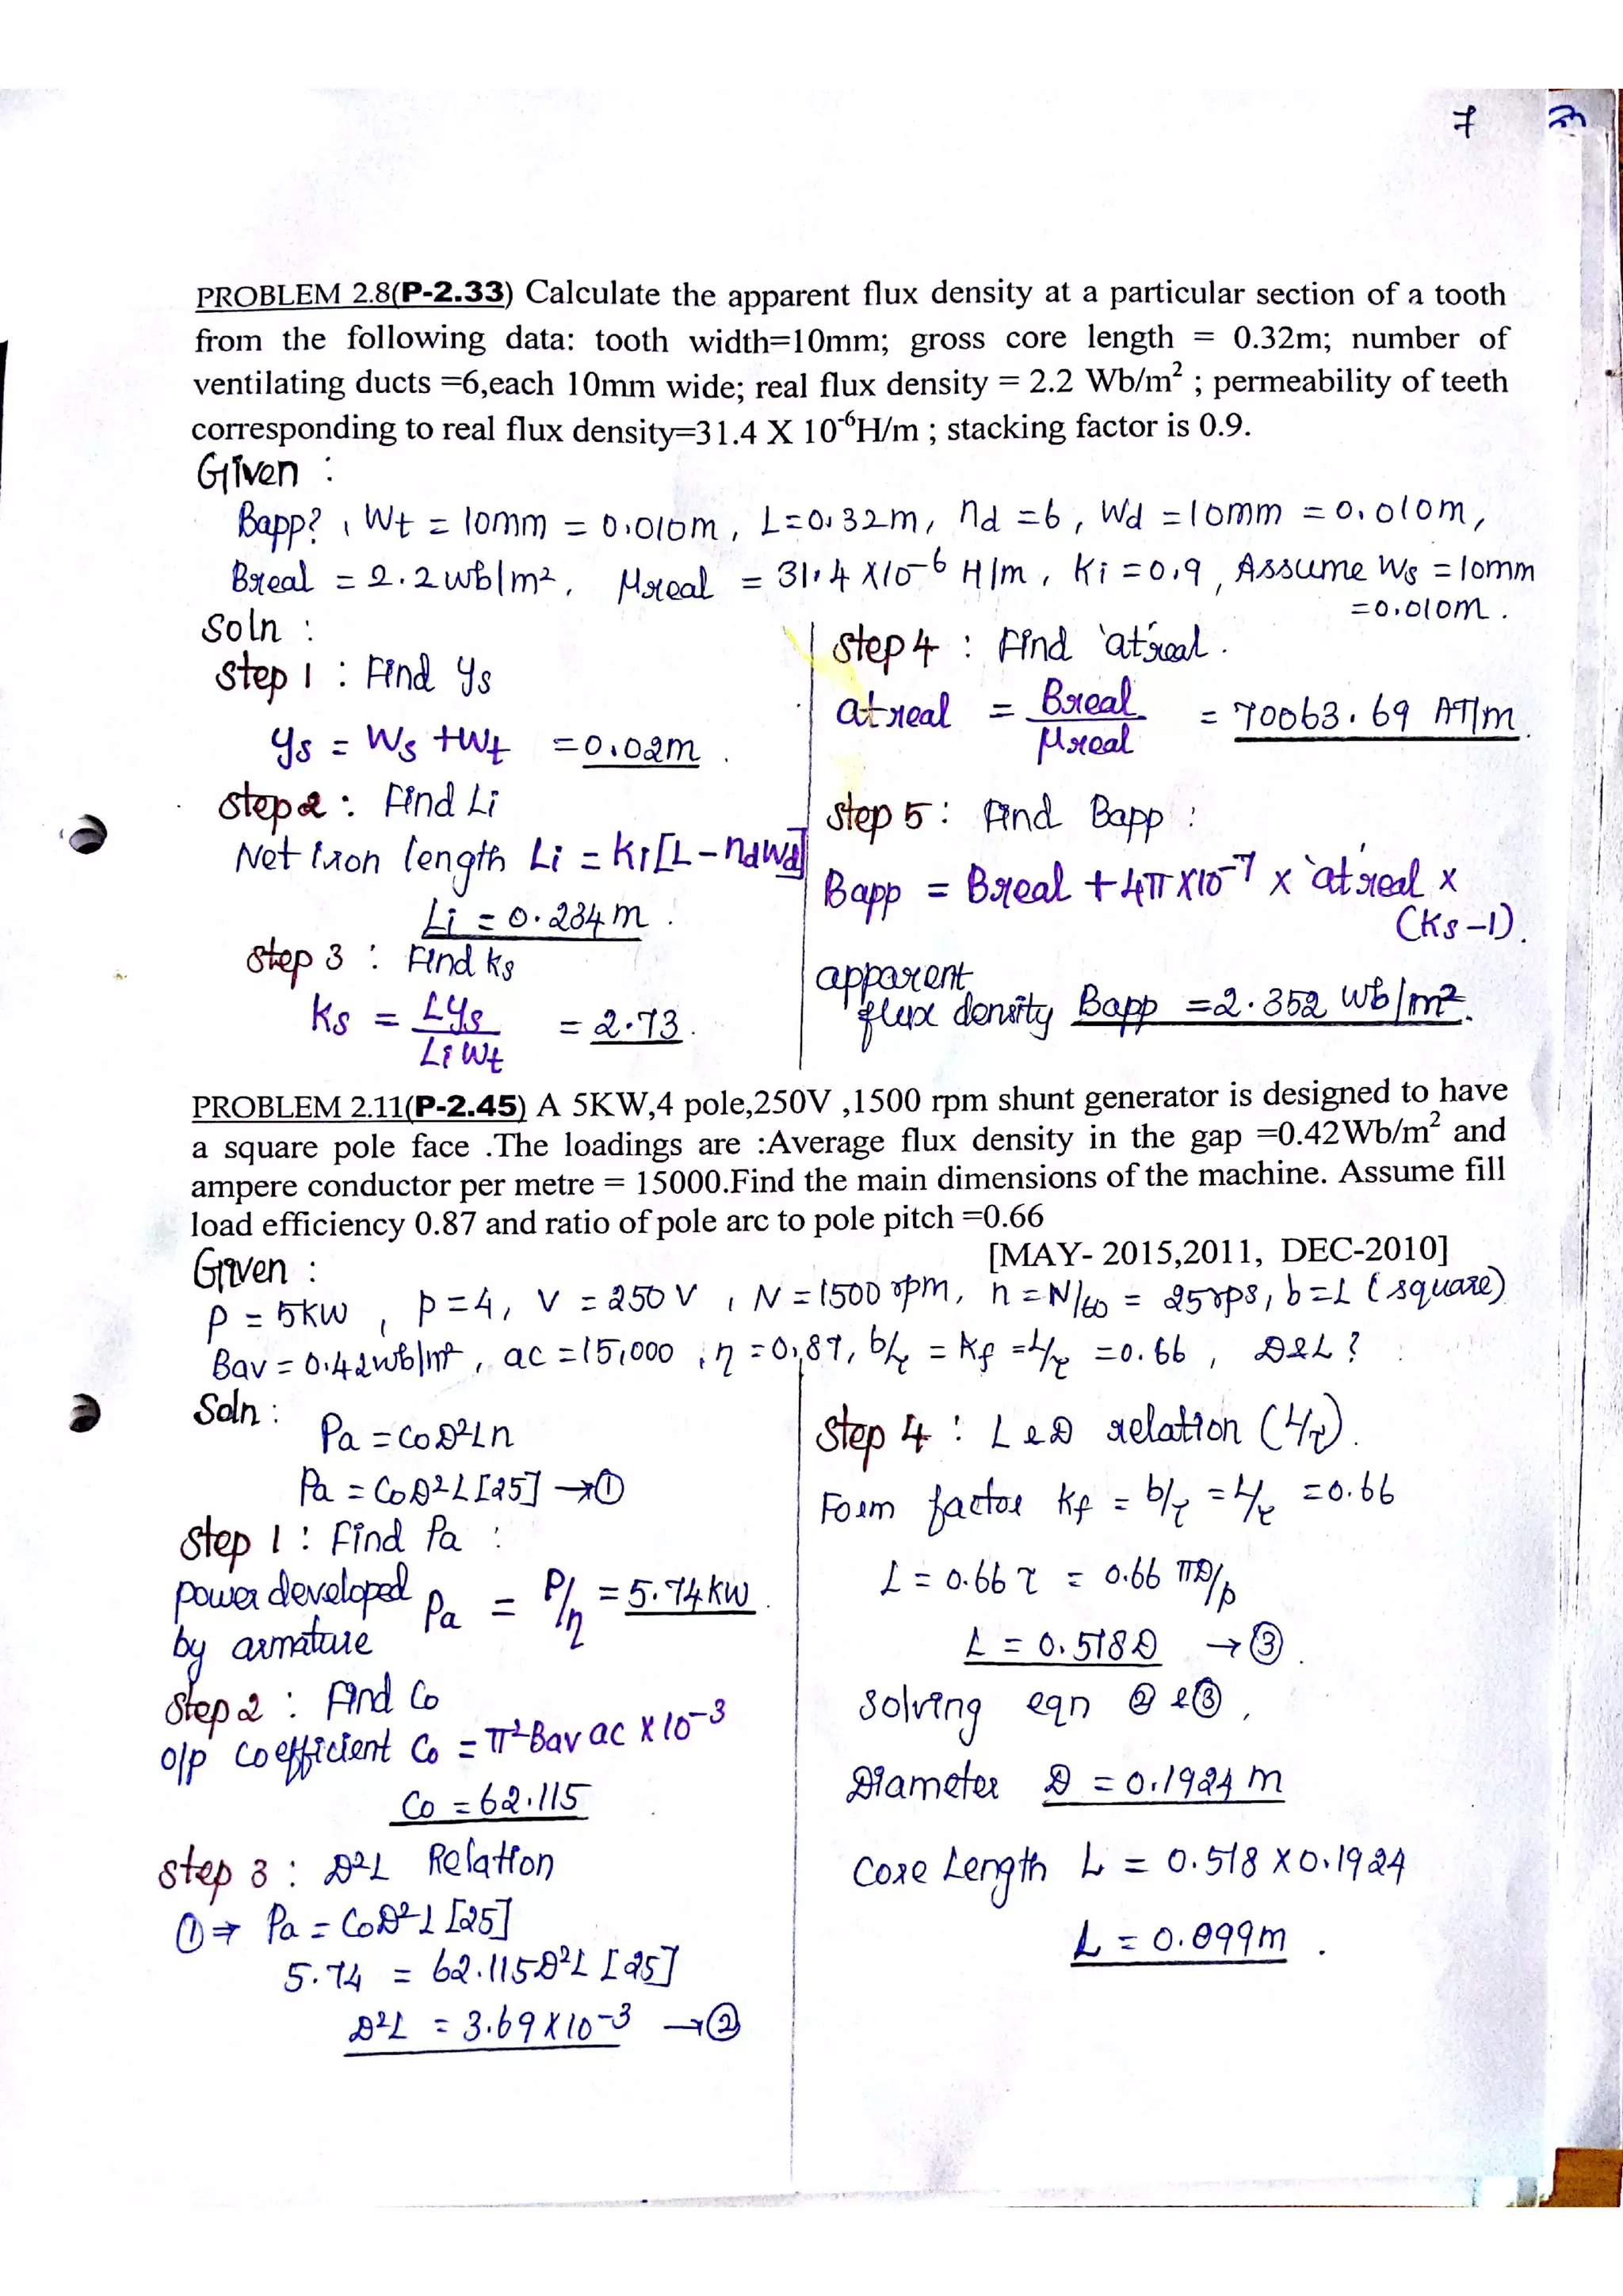 7
PROBLEM 2.8(P-2.33) Calculate the apparent flux density at a particular section of a tooth
from the following data: tooth width=10mm; gross core length = 0.32m; number of
ventilating ducts =6,each 10mm wide; real flux density = 2.2 Wb/m² ; permeability of teeth
corresponding to real flux density=31.4 X 10⁻⁶H/m ; stacking factor is 0.9.
Given :
Bapp? , Wt = 10mm = 0.010m, L=0.32m, nd =6, Wd =10mm = 0.010m,
Breal = 2.2wb/m², μreal = 31.4 X10⁻⁶ H/m, Ki =0.9, Assume Ws =10mm
=0.010m.
Soln :
Step 1 : Find ys
ys = Ws +Wt =0.02m.
Step 2 : Find Li
Net iron length Li = Ki[L-ndWd]
Li = 0.234m.
Step 3 : Find ks
Ks = Lys / Li Wt = 2.73.
Step 4 : Find 'at'real.
atreal = Breal / μreal = 70063.69 AT/m.
Step 5 : Find Bapp :
Bapp = Breal + 4π X10⁻⁷ x 'at'real x
(Ks -1).
apparent
flux density Bapp =2.352 wb/m².
PROBLEM 2.11(P-2.45) A 5KW,4 pole,250V ,1500 rpm shunt generator is designed to have
a square pole face .The loadings are :Average flux density in the gap =0.42Wb/m² and
ampere conductor per metre = 15000.Find the main dimensions of the machine. Assume fill
load efficiency 0.87 and ratio of pole arc to pole pitch =0.66
[MAY- 2015,2011, DEC-2010]
Given :
P = 5KW , p=4, V = 250 V , N=1500 rpm, n = N/60 = 25rps, b=L (square)
Bav = 0.42wb/m² , ac =15,000 , η =0.87, b/τ = Kf =L/τ =0.66 , D&L ?
Soln :
Pa =CoD²Ln
Pa = CoD²L[25] →①
Step 1 : Find Pa :
power developed
by armature Pa = P/η =5.74kw.
Step 2 : Find Co
o/p coefficient Co = π²Bav ac X 10⁻³
Co =62.115
Step 3 : D²L Relation
①⇒ Pa = CoD²L [25]
5.74 = 62.115D²L [25]
D²L = 3.69X10⁻³ →②
Step 4 : L & D relation (L/τ).
Form factor Kf = b/τ = L/τ =0.66
L = 0.66 τ = 0.66 πD/p
L = 0.518D →③.
Solving eqn ② &③,
Diameter D = 0.1924 m
Core Length L = 0.518 X0.1924
L = 0.099m .